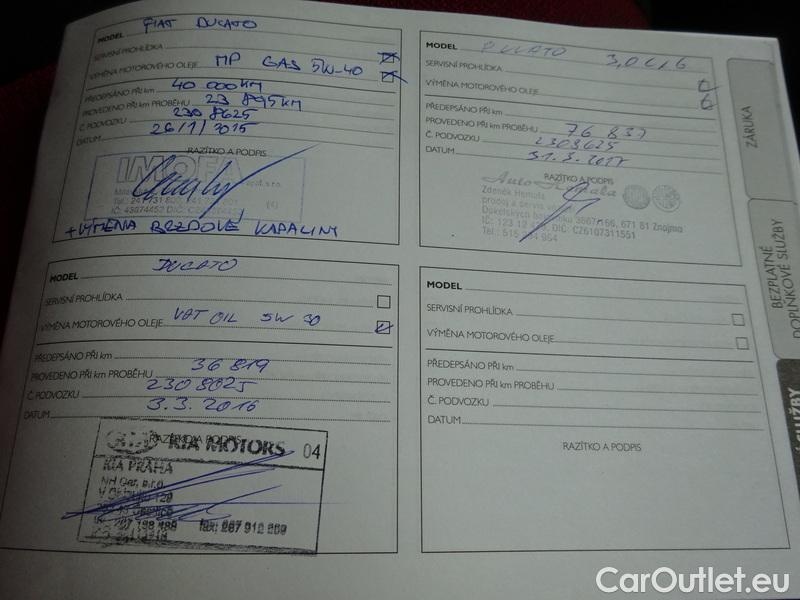 MODEL FIAT DUCATO
SERVISNÍ PROHLÍDKA
VÝMĚNA MOTOROVÉHO OLEJE MP GAS 5W-40
PŘEDEPSÁNO PŘI km 40 000KM
PROVEDENO PŘI KM PROBĚHU 23 895KM
Č. PODVOZKU 2308625
DATUM 26/1/2015
RAZÍTKO A PODPIS
IMOFA
(4)
+ VÝMĚNA BRZDOVÉ KAPALINY
MODEL DUCATO 3,0 C/6
SERVISNÍ PROHLÍDKA
VÝMĚNA MOTOROVÉHO OLEJE
PŘEDEPSÁNO PŘI km
PROVEDENO PŘI KM PROBĚHU 76 837
Č. PODVOZKU 2308625
DATUM 31.3.2017
RAZÍTKO A PODPIS
Zdeněk Hemala
prodej a servis
671 81 Znojmo
IČ: 123 12 DIČ: CZ6107311551
Tel.: 515 954
MODEL DUCATO
SERVISNÍ PROHLÍDKA
VÝMĚNA MOTOROVÉHO OLEJE VAT OIL 5W 30
PŘEDEPSÁNO PŘI km
PROVEDENO PŘI KM PROBĚHU 36 819
Č. PODVOZKU 2308025
DATUM 3.3.2016
RAZÍTKO A PODPIS
KIA MOTORS 04
KIA PRAHA
NH Car, s.r.o.
fax: 267 912
MODEL
SERVISNÍ PROHLÍDKA
VÝMĚNA MOTOROVÉHO OLEJE
PŘEDEPSÁNO PŘI km
PROVEDENO PŘI KM PROBĚHU
Č. PODVOZKU
DATUM
RAZÍTKO A PODPIS
ZÁRUKA
BEZPLATNÉ
DOPLŇKOVÉ SLUŽBY
SLUŽBY
CarOutlet.eu